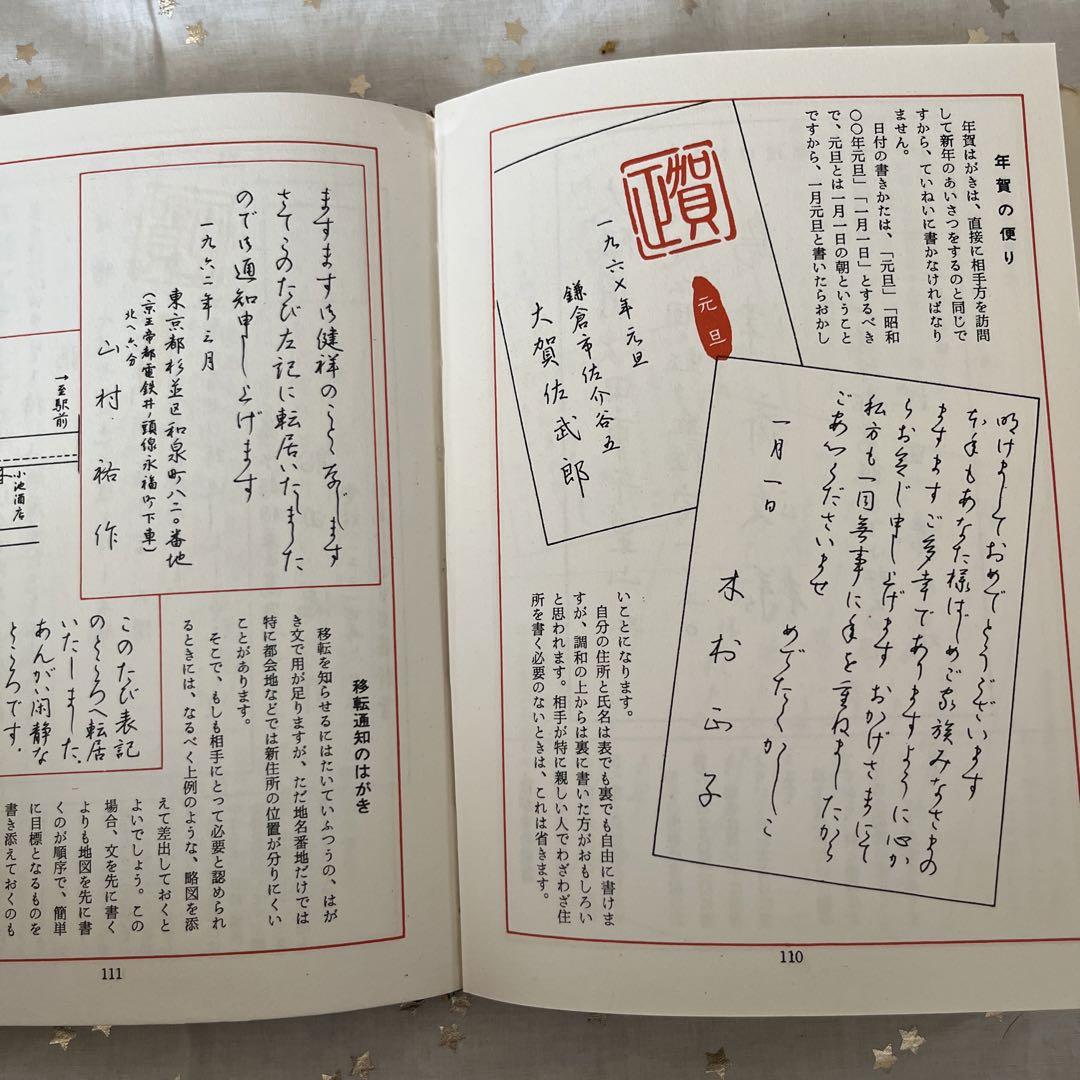 年賀の便り
年賀はがきは、直接に相手方を訪問
して新年のあいさつをするのと同じで
すから、ていねいに書かなければなり
ません。
日付の書きかたは、「元旦」「昭和
〇〇年元旦」「一月一日」とするべき
で、元旦とは一月一日の朝ということ
ですから、一月元旦と書いたらおかし
賀正
元旦
一九六〆年元旦
鎌倉市佐介谷五
大賀佐武郎
明けましておめでとうございます
本年もあなた様はじめご家族みなさまの
ますますご多幸でありますように心か
らお念じ申し上げます おかげさまにて
私方も一同無事に年を重ねましたから
ご安心くださいませ
めでたくかしこ
一月一日
木村正子
いことになります。
自分の住所と氏名は表でも裏でも自由に書けま
すが、調和の上からは裏に書いた方がおもしろい
と思われます。相手が特に親しい人でわざわざ住
所を書く必要のないときは、これは省きます。
110
ますます御健祥のことと存じます
さてこのたび左記に転居いたしました
ので御通知申し上げます
一九六二年三月
東京都杉並区和泉町八二〇番地
(京王帝都電鉄井ノ頭線永福町下車)
北へ六分
山村祐作
→至駅前
小池酒店
移転通知のはがき
移転を知らせるにはたいていふつうの、はが
き文で用が足りますが、ただ地名番地だけでは
特に都会地などでは新住所の位置が分りにくい
ことがあります。
そこで、もしも相手にとって必要と認められ
るときには、なるべく上例のような、略図を添
えて差出しておくと
よいでしょう。この
場合、文を先に書く
よりも地図を先に書
くのが順序で、簡単
に目標となるものを
書き添えておくのも
このたび表記
のところへ転居
いたしました。
あんがい閑静な
ところです。
111